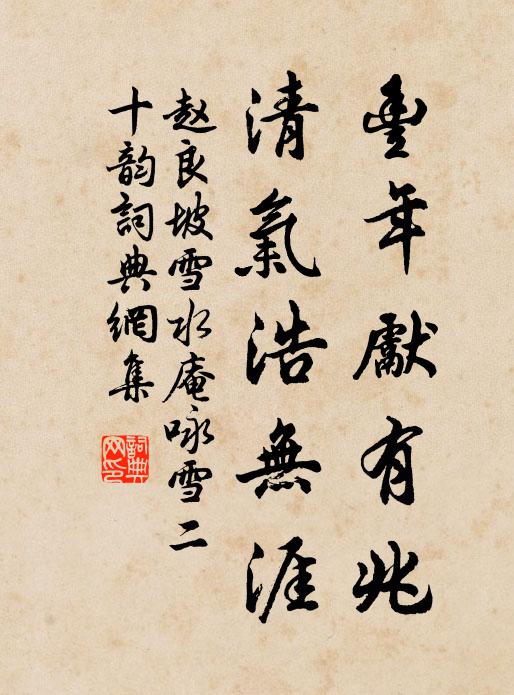 豐年獻有兆
清氣浩無涯
赵良坡雪水庵咏雪二
十韵詞典網集
詞典
网印